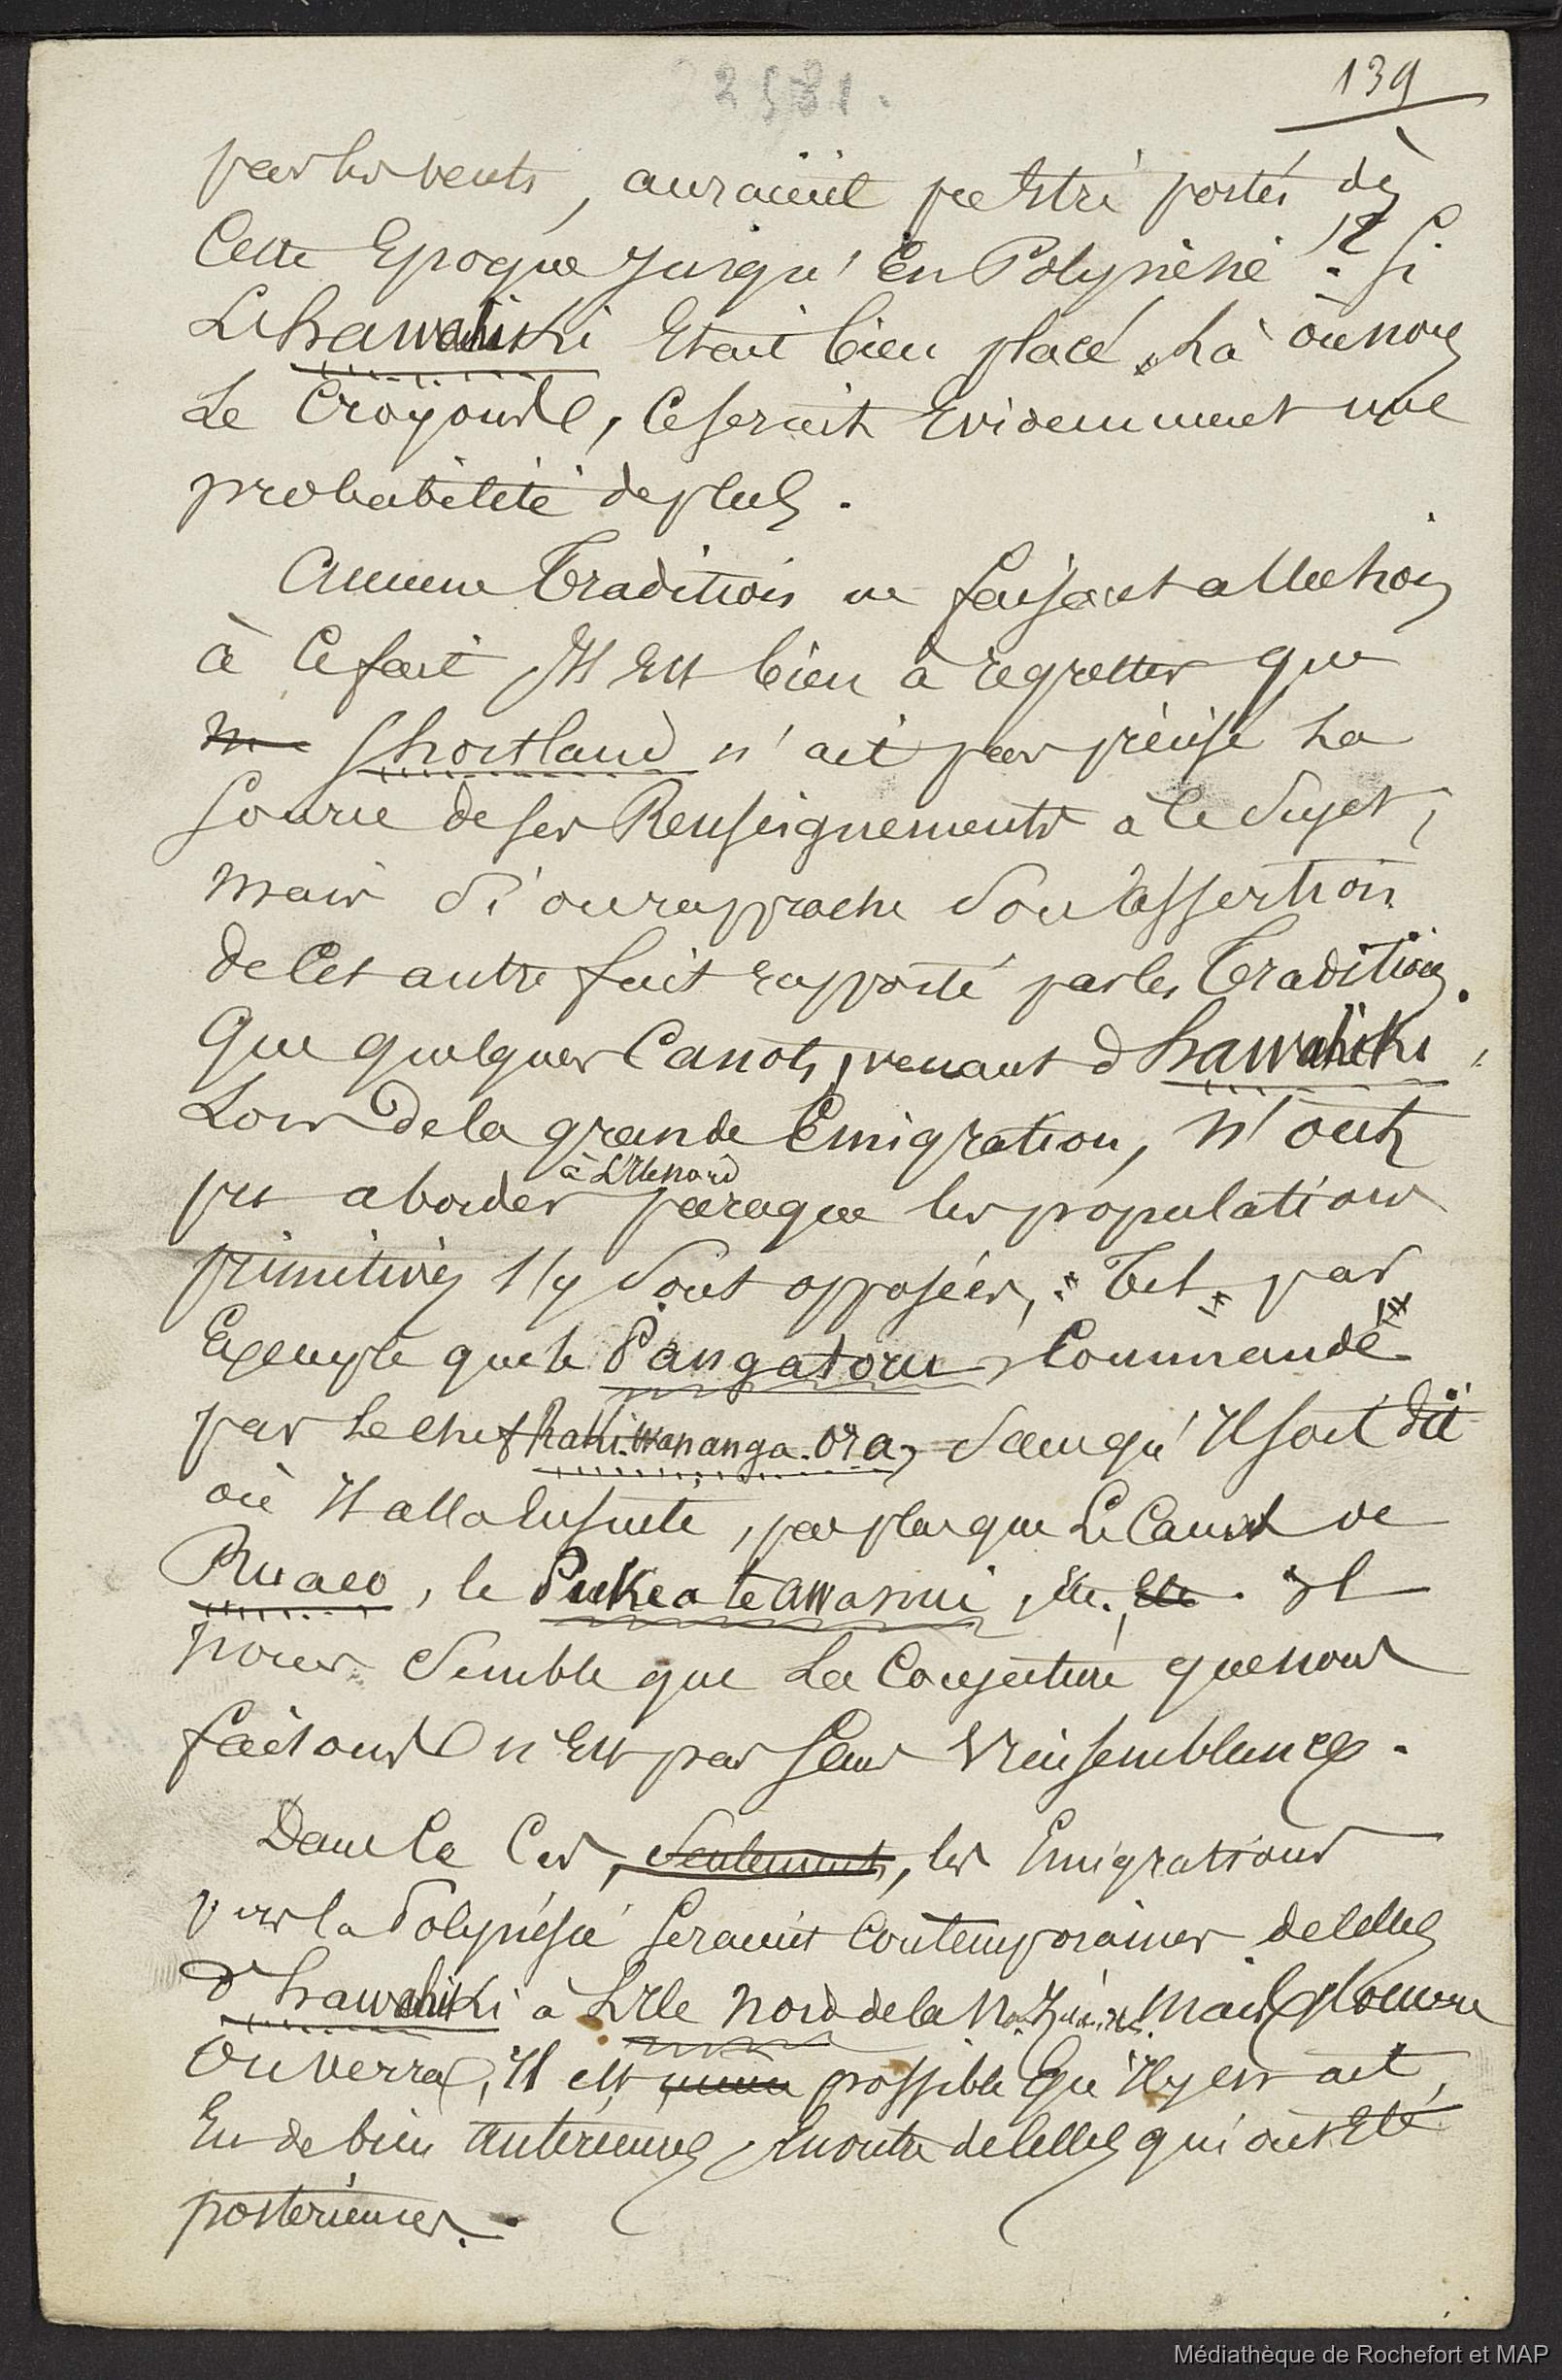 2581.
139
par les vents, auraient pu être portés dès
cette Epoque jusqu'en Polynésie !? Si
L'hawahiki Etait bien placé là où nous
Le Croyons, ce serait Evidemment une
probabilité de plus.
Aucune Tradition ne faisant allusion
à ce fait Il Est bien à regretter que
Shortland n'ait pas précisé La
Source de ses Renseignements à ce Sujet,
mais si on rapproche Son assertion
de cet autre fait rapporté par les Traditions.
Que quelques Canots, venant d'hawahiki,
Lors de la grande Emigration, n'ont
pu aborder à L'Ile nord parceque les populations
primitives s'y sont opposées, : Tel par
Exemple que le Pangatoru, Commandé
par Le chef Rakiwananga.ora, sans qu'Il soit dit
où Il alla Ensuite, pas plus que Le Canot de
Ruaeo, le Pukeateawanui, etc. etc. Il
nous Semble que La Conjecture que nous
faisons n'Est pas sans Vraisemblance.
Dans ce Cas, Seulement, les Emigrations
vers la Polynésie seraient Contemporaines de celles
d'hawahiki à L'Ile nord de la Nlle Zélande. Mais, comme
on verra, Il est même possible qu'Il y en ait,
Eu de bien antérieures, En outre de celles qui ont Eté
postérieures.
Médiathèque de Rochefort et MAP